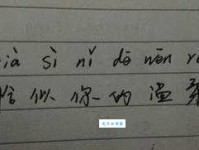 ià sì nǐ de wēn r
恰似你的温柔